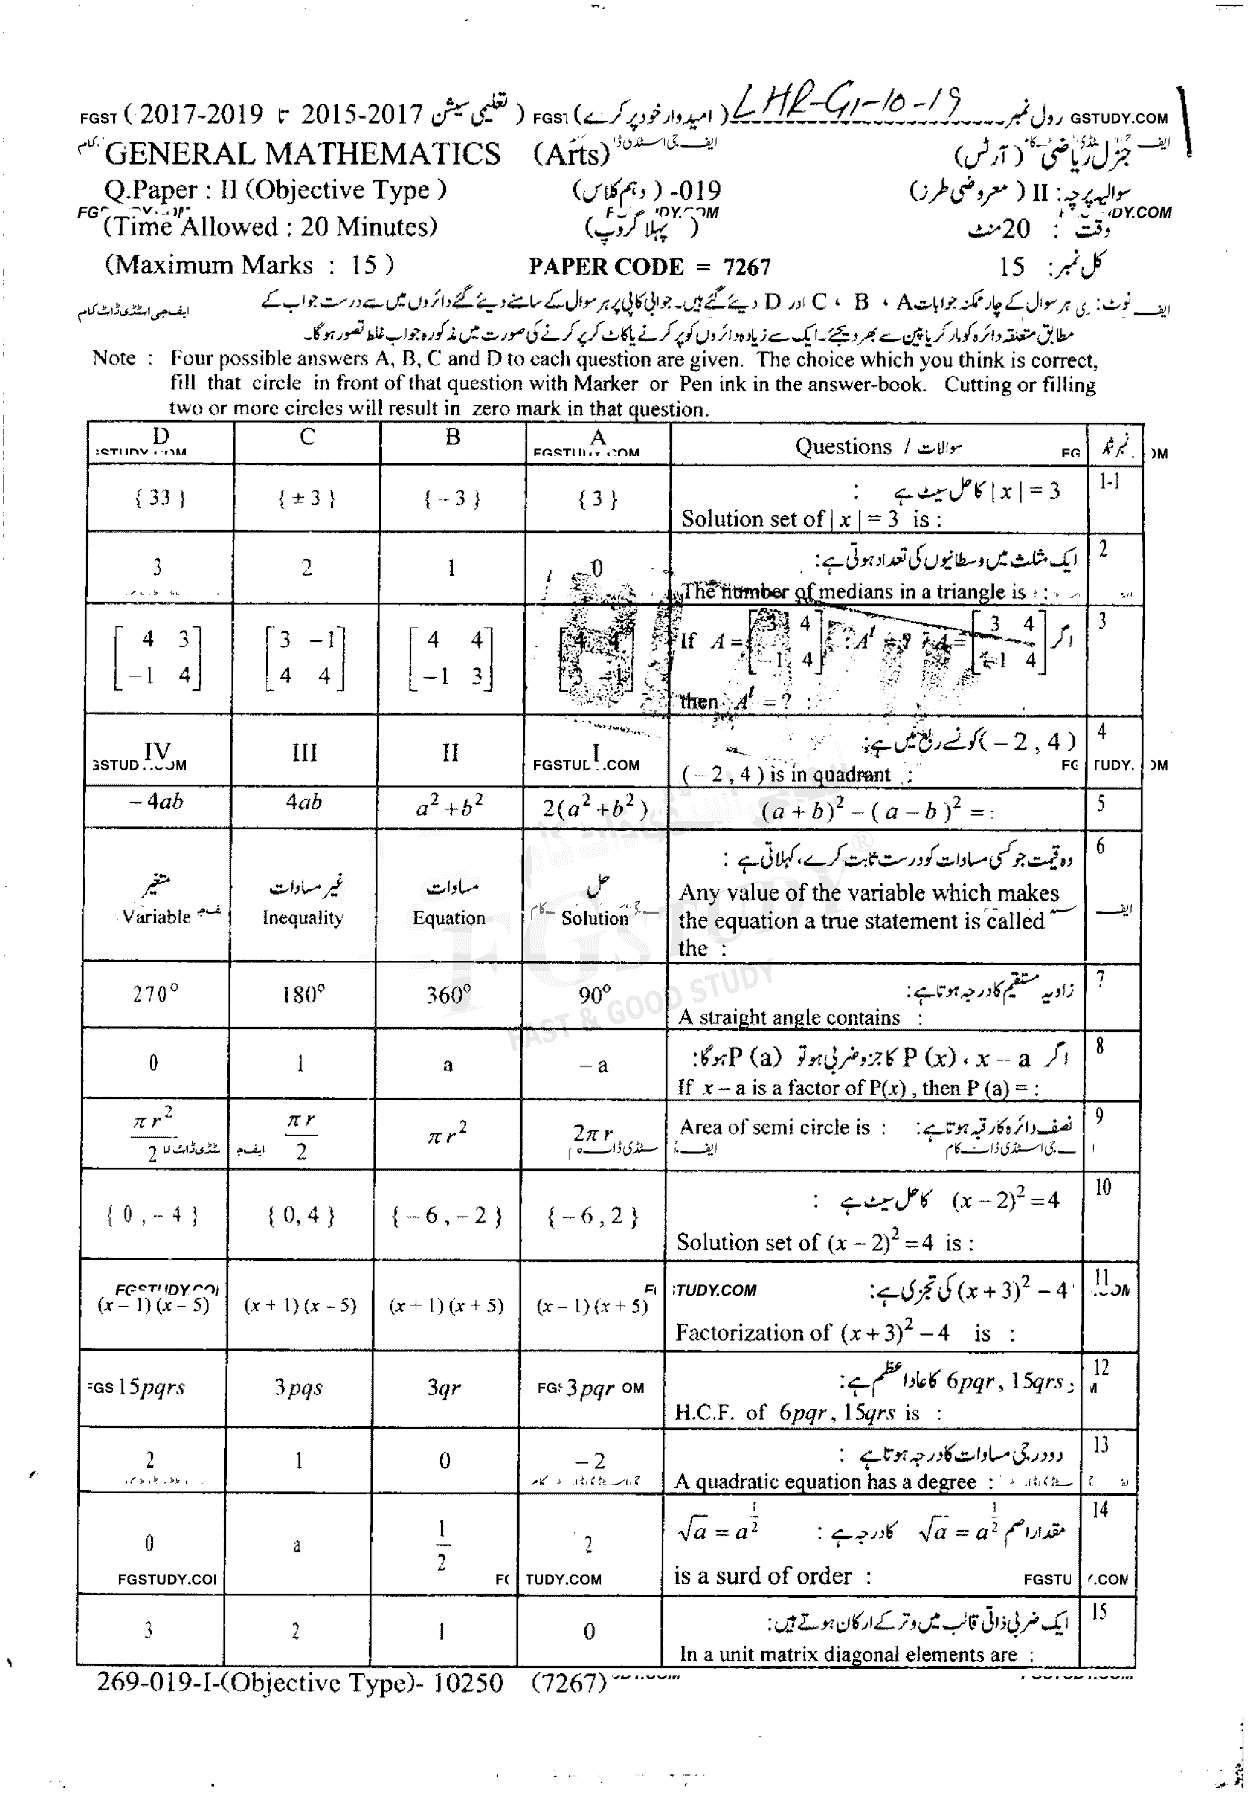 FGST ( 2017-2019 تا 2015-2017 تعلیمی سیشن ) FGST (امیدوار خود پر کرے) LHR-G1-10-19 رول نمبر GSTUDY.COM
GENERAL MATHEMATICS (Arts) جنرل ریاضی (آرٹس)
Q.Paper : II (Objective Type ) 019- (دہم کلاس) سوالیہ پرچہ : II (معروضی طرز)
(Time Allowed : 20 Minutes) (پہلا گروپ) وقت : 20 منٹ
(Maximum Marks : 15 ) PAPER CODE = 7267 کل نمبر: 15
نوٹ: ہر سوال کے چار ممکنہ جوابات A ، B ، C اور D دیئے گئے ہیں۔ جوابی کاپی پر ہر سوال کے سامنے دیئے گئے دائروں میں سے درست جواب کے ایف جی اسٹڈی ڈاٹ کام
مطابق متعلقہ دائرہ کو مارکر یا پین سے بھر دیجئے۔ ایک سے زیادہ دائروں کو پر کرنے یا کاٹ کر پر کرنے کی صورت میں مذکورہ جواب غلط تصور ہوگا۔
Note : Four possible answers A, B, C and D to each question are given. The choice which you think is correct,
fill that circle in front of that question with Marker or Pen ink in the answer-book. Cutting or filling
two or more circles will result in zero mark in that question.
D C B A Questions / سوالات نمبر شمار
{ 33 } { ± 3 } { − 3 } { 3 } | x | = 3 کا حل سیٹ ہے : 1-1
Solution set of | x | = 3 is :
3 2 1 0 ایک مثلث میں وسطانیوں کی تعداد ہوتی ہے: 2
The number of medians in a triangle is :
[4 3; −1 4] [3 −1; 4 4] [4 4; −1 3] [4 4; 3 −1] If A = [3 4; −1 4] : Aᵗ = ? ; A = [3 4; −1 4] اگر 3
then Aᵗ = ? :
IV III II I (−2 , 4) کونسے ربع میں ہے: 4
GSTUD FGSTUD .COM TUDY.
( − 2 , 4 ) is in quadrant :
− 4ab 4ab a² + b² 2(a² + b²) (a + b)² − ( a − b )² = : 5
وہ قیمت جو کسی مساوات کو درست ثابت کرے، کہلاتی ہے : 6
متغیر غیر مساوات مساوات حل
Variable Inequality Equation Solution Any value of the variable which makes
the equation a true statement is called
the :
270° 180° 360° 90° زاویہ مستقیم کا درجہ ہوتا ہے: 7
A straight angle contains :
0 1 a − a اگر x − a ، P (x) کا جزو ضربی ہو تو P (a) ہوگا: 8
If x − a is a factor of P(x) , then P (a) = :
πr²/2 πr/2 πr² 2πr Area of semi circle is : نصف دائرہ کا رقبہ ہوتا ہے: 9
{ 0 , − 4 } { 0, 4 } { − 6 , − 2 } { − 6 , 2 } (x − 2)² = 4 کا حل سیٹ ہے : 10
Solution set of (x − 2)² = 4 is :
STUDY.COM (x + 3)² − 4 کی تجزی ہے: 11
(x − 1) (x − 5) (x + 1) (x − 5) (x + 1) (x + 5) (x − 1) (x + 5)
Factorization of (x + 3)² − 4 is :
15pqrs 3pqs 3qr 3pqr 6pqr , 15qrs کا عاد اعظم ہے: 12
H.C.F. of 6pqr , 15qrs is :
2 1 0 − 2 دو درجی مساوات کا درجہ ہوتا ہے : 13
A quadratic equation has a degree :
0 a 1/2 2 √a = a^(1/2) مقدار اصم √a = a^(1/2) کا درجہ ہے : 14
FGSTUDY.COM TUDY.COM is a surd of order : FGSTU .COM
3 2 1 0 ایک ضربی ذاتی قالب میں وتر کے ارکان ہوتے ہیں: 15
In a unit matrix diagonal elements are :
269-019-I-(Objective Type)- 10250 (7267)
FGSTUDY
FAST & GOOD STUDY